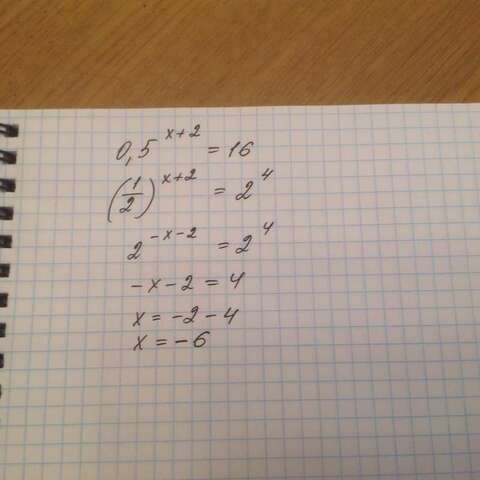 0,5^{x+2} = 16
(1/2)^{x+2} = 2^4
2^{-x-2} = 2^4
-x-2 = 4
x = -2-4
x = -6